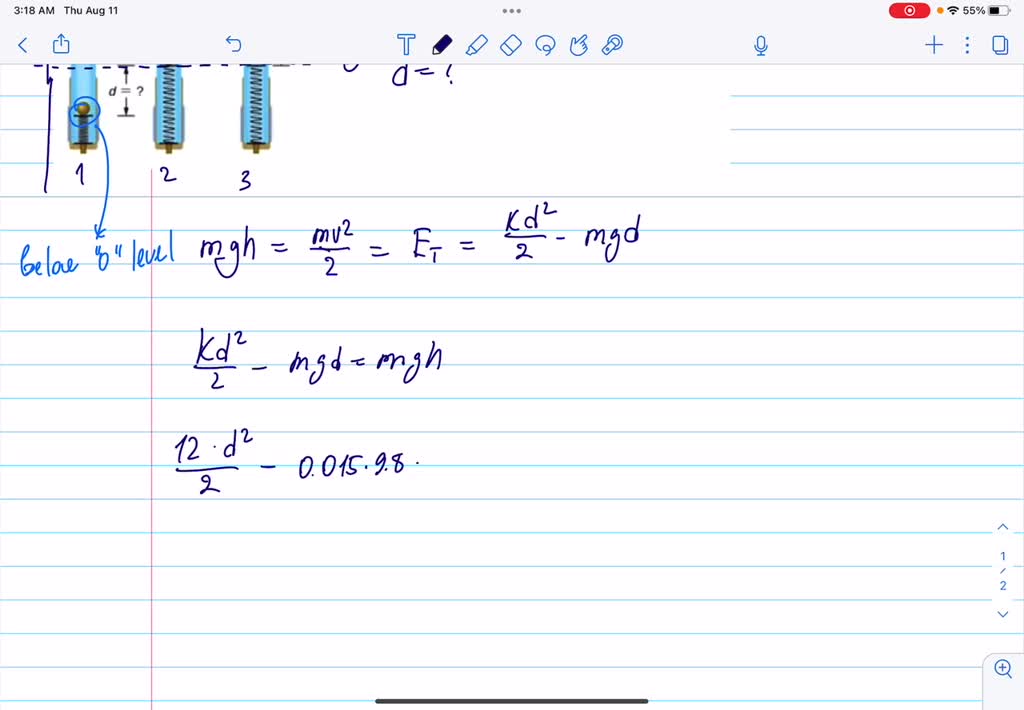 3:18 AM Thu Aug 11
55%
T
d = ?
d = ?
1 2 3
below "0" level
mgh = mv²/2 = E_T = kd²/2 - mgd
kd²/2 - mgd = mgh
12 · d²/2 - 0.015 · 9.8 ·
1
/
2